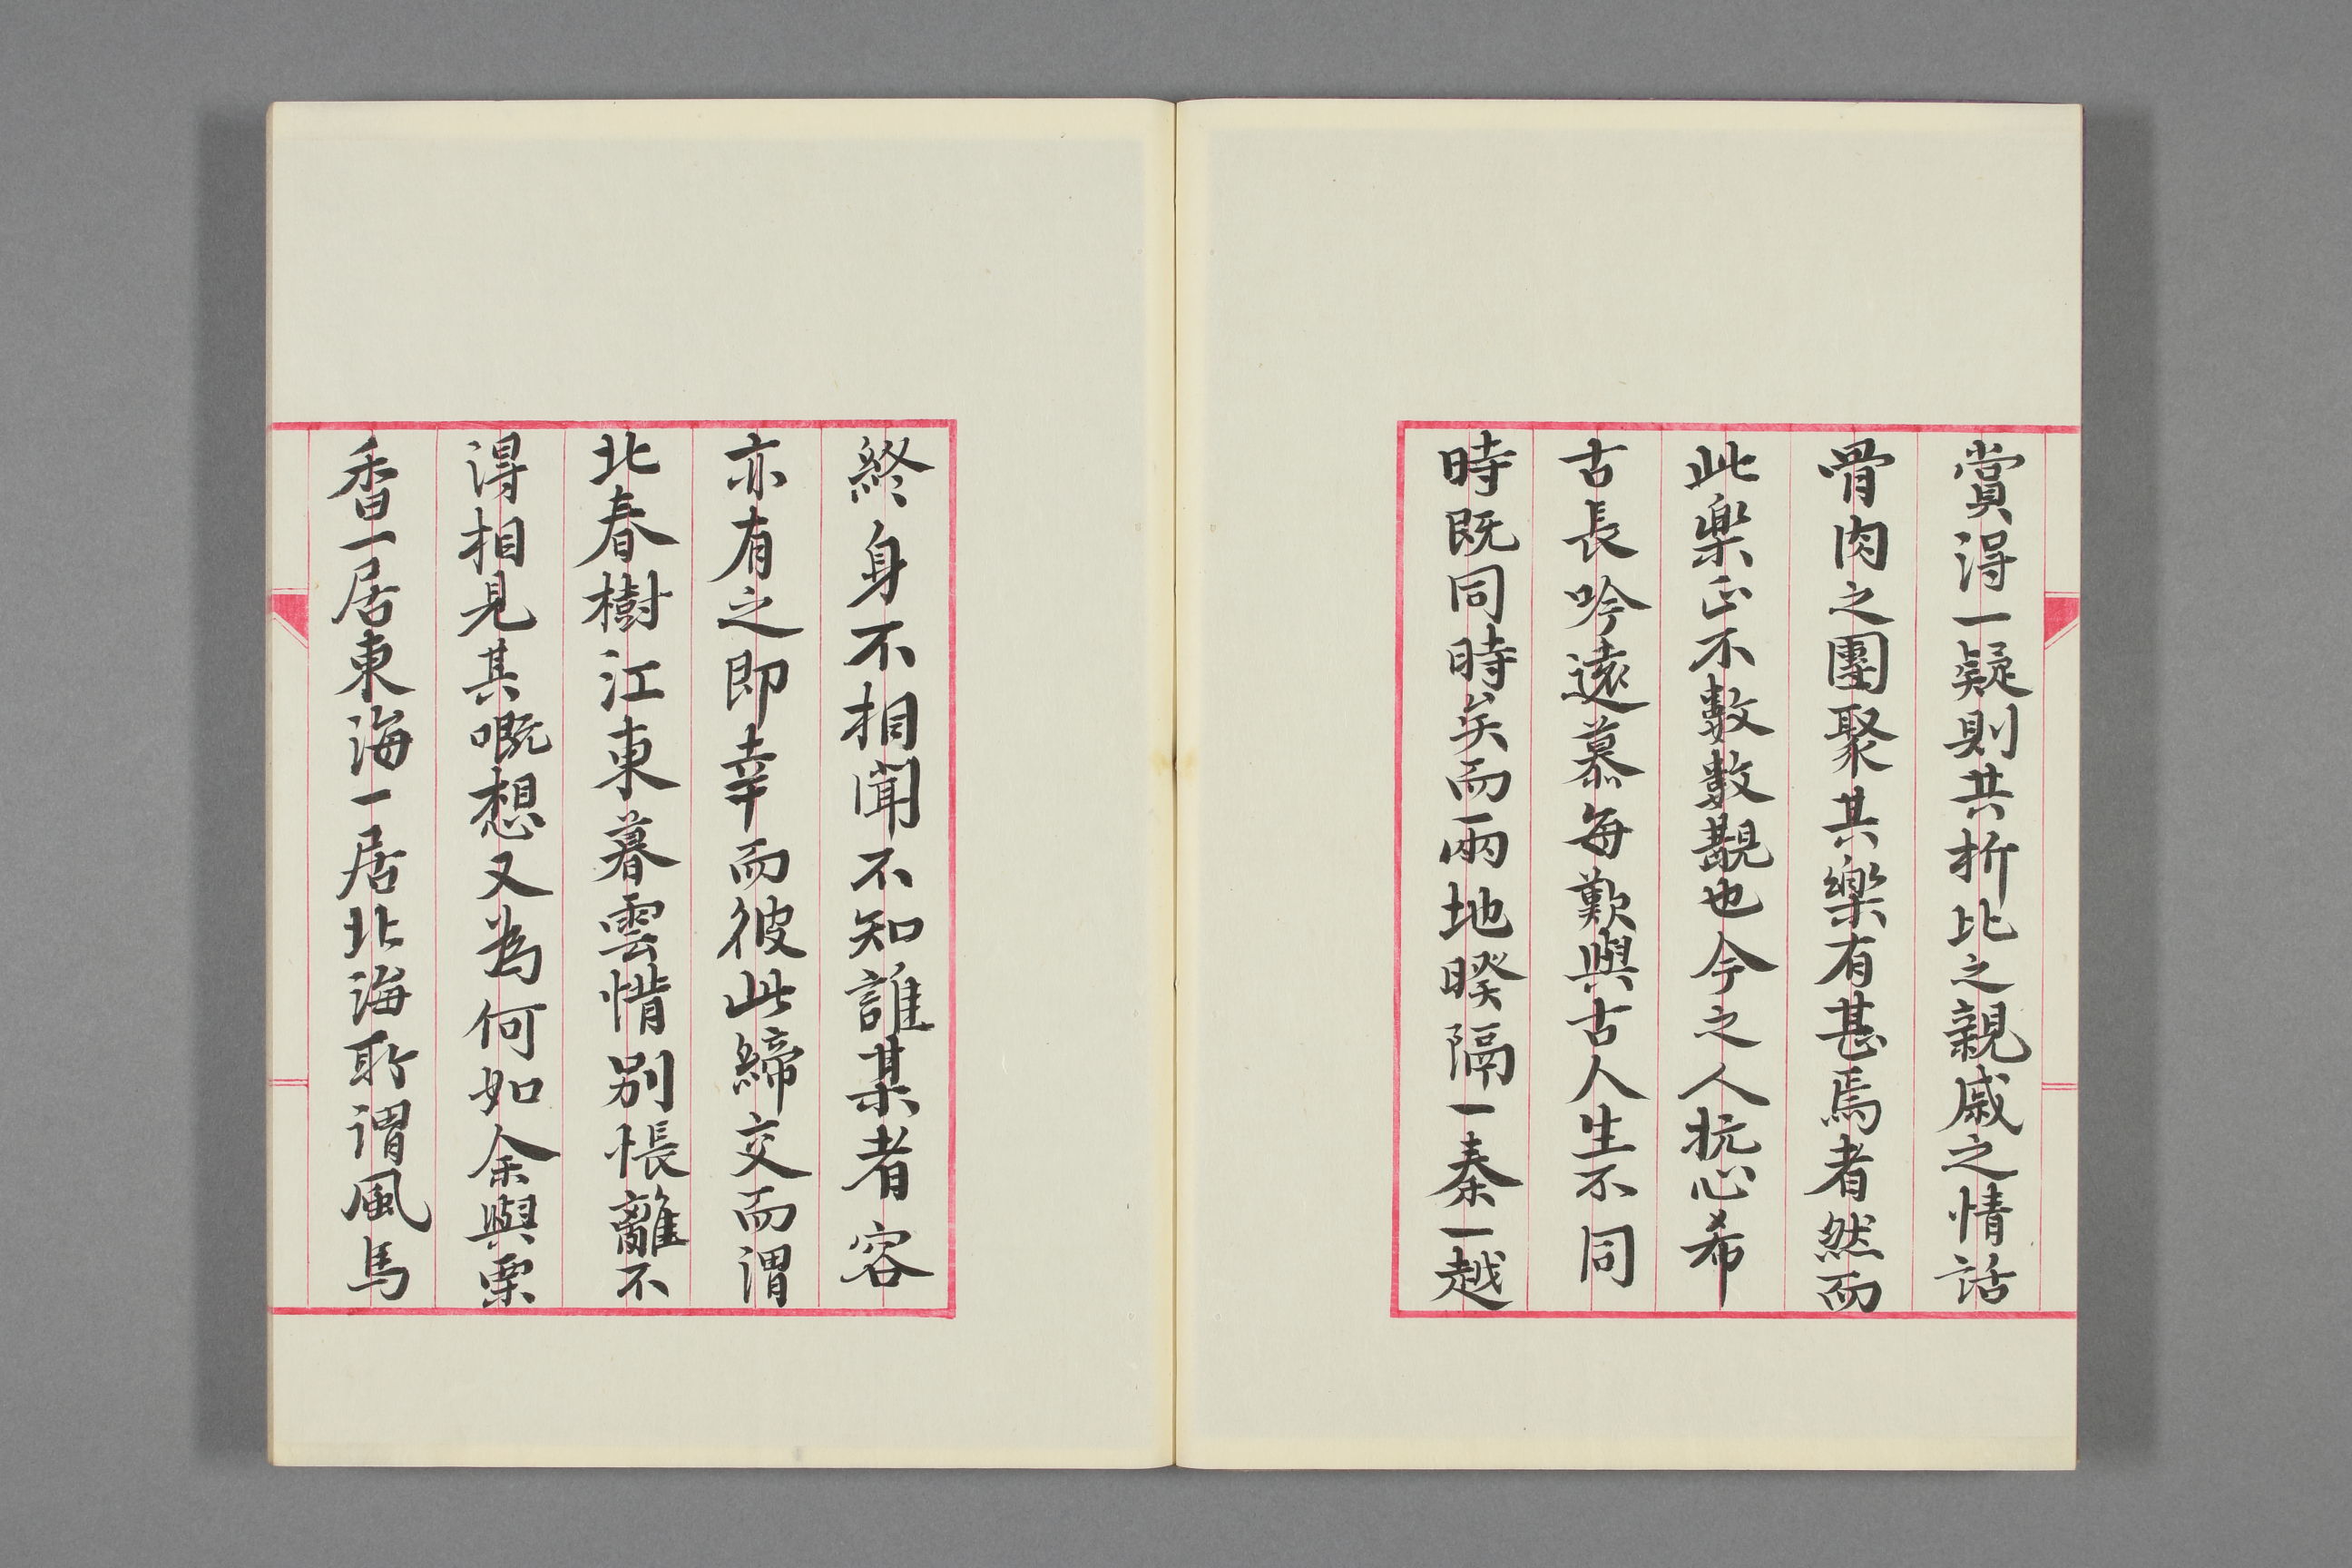 賞得一疑則共析比之親戚之情話
骨肉之團聚其樂有甚焉者然而
此樂正不數數覯也今之人抗心希
古長吟遠慕每歎與古人生不同
時既同時矣而兩地暌隔一秦一越
終身不相聞不知誰某者容
亦有之即幸而彼此締交而謂
北春樹江東暮雲惜別悵離不
得相見其嘅想又為何如余與栗
香一居東海一居北海所謂風馬